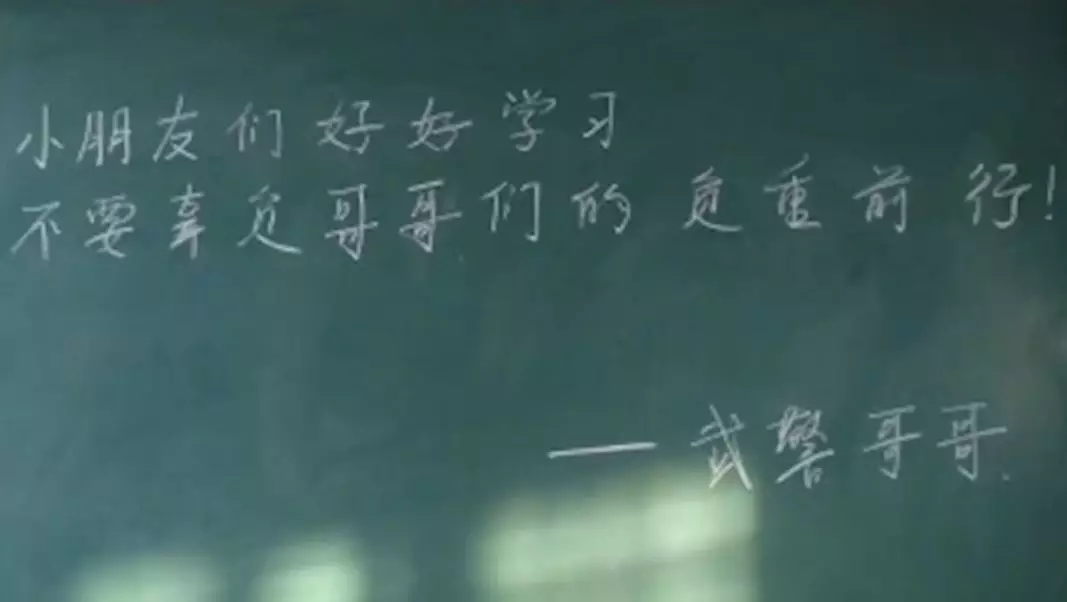 小朋友们好好学习
不要辜负哥哥们的负重前行!
——武警哥哥.